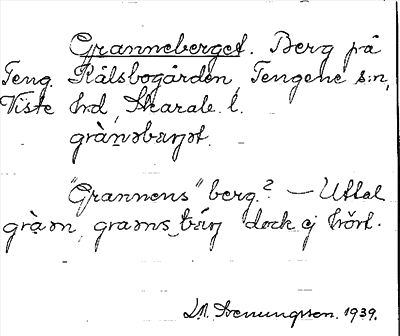 Granneberget. Berg på
Teng. Kålsbogården, Tengene s:n,
Viste hrd, Skarab. l.
grànəbærjət.
"Grannens" berg? – Uttal
gràm, grams bærj dock ej hört.
1939.